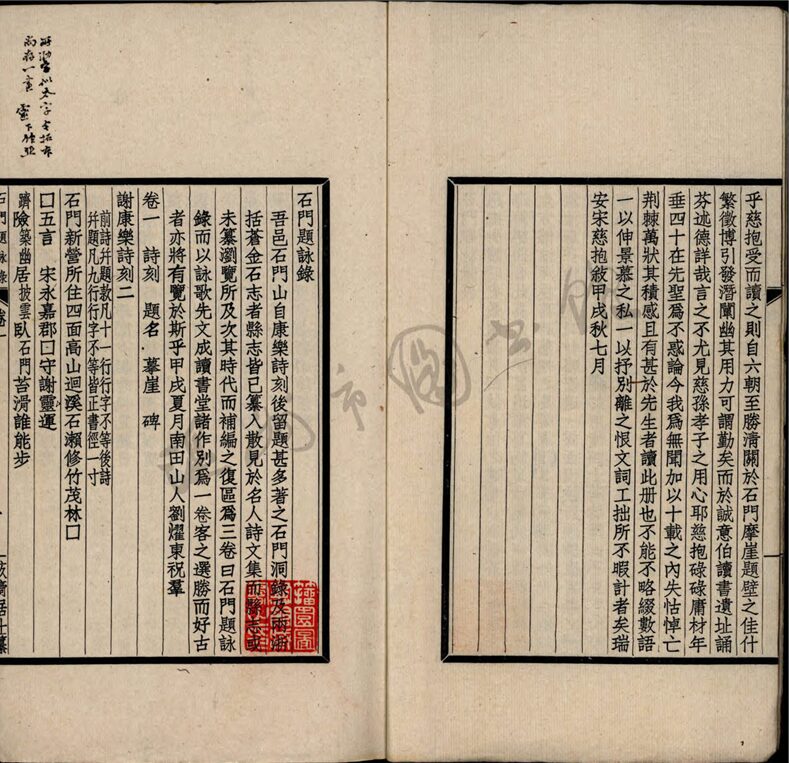 乎慈抱受而讀之則自六朝至勝清關於石門摩崖題壁之佳什
繁徵博引發潛闡幽其用力可謂勤矣而於誠意伯讀書遺址誦
芬述德詳哉言之不尤見慈孫孝子之用心耶慈抱碌碌庸材年
垂四十在先聖爲不惑論今我爲無聞加以十載之內失怙悼亡
荆棘萬狀其積感且有甚於先生者讀此册也不能不略綴數語
一以伸景慕之私一以抒別離之恨文詞工拙所不暇計者矣瑞
安宋慈抱敘甲戌秋七月
石門題詠錄
吾邑石門山自康樂詩刻後留題甚多著之石門洞錄及兩浙
括蒼金石志者縣志皆已纂入散見於名人詩文集而縣志或
未纂瀏覽所及次其時代而補編之復區爲三卷曰石門題詠
錄而以詠歌先文成讀書堂諸作別爲一卷客之選勝而好古
者亦將有覽於斯乎甲戌夏月南田山人劉燿東祝羣
卷一 詩刻 題名 摹崖 碑
謝康樂詩刻二
前詩幷題款凡十一行行字不等後詩
幷題凡九行行字不等皆正書徑一寸
石門新營所住四面高山迴溪石瀨修竹茂林口
口五言 宋永嘉郡口守謝靈運
躋險築幽居披雲臥石門苔滑誰能步
石門題詠錄 卷一
尚存一 靈下